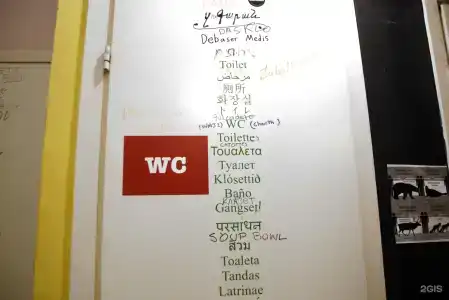 զուգարան
DAS KLO
Debaser Medis
Toilet
مرحاض
厠所
화장실
トイレ
WC
Toilettes
Τουαλέτα
Туалет
WC
Klósettið
Baño
Gangset!
परसाधन
SOUP BOWL
ส้วม
Toaleta
Tandas
Latrinae
2GIS